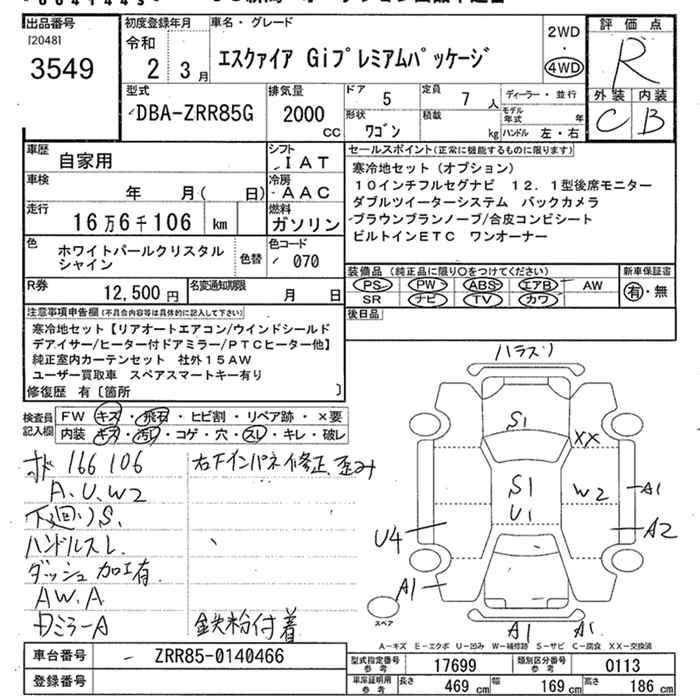 出品番号
[2048]
3549
初度登録年月
令和
2 3月
車名・グレード
エスクァイア Giプレミアムパッケージ
2WD
・
4WD
評価点
R
外装 内装
C B
型式
DBA-ZRR85G
排気量
2000
CC
ドア 5
定員 7 人
ディーラー・並行
形状 ワゴン
積載 kg
モデル年式 年
ハンドル 左・右
車歴 自家用
シフト
IAT
車検 年 月( 日)
冷房
AAC
走行 16万6千106 km
燃料
ガソリン
色 ホワイトパールクリスタル
シャイン
色替
色コード
070
R券 12,500 円
名変通知期限 月 日
セールスポイント(正常に機能するものに限ります)
寒冷地セット(オプション)
10インチフルセグナビ 12.1型後席モニター
ダブルツイーターシステム バックカメラ
ブラウンブランノーブ/合皮コンビシート
ビルトインETC ワンオーナー
装備品(純正品に限り○をつけてください)
PS PW ABS エアB AW
SR ナビ TV カワ
新車保証書
有・無
後日品
注意事項申告欄(不具合内容等は具体的に記入して下さい)
寒冷地セット【リアオートエアコン/ウインドシールド
デアイサー/ヒーター付ドアミラー/PTCヒーター他】
純正室内カーテンセット 社外15AW
ユーザー買取車 スペアスマートキー有り
修復歴 有〔箇所 〕
検査員
記入欄
FW キズ・飛石・ヒビ割・リペア跡・×要
内装 キズ・汚れ・コゲ・穴・スレ・キレ・破レ
166106
右下インパネ修正、歪み
A、U、W2
下廻りS.
ハンドルスレ
ダッシュ加工有
AW.A
カミラーA
鉄粉付着
ハラスリ
S1
XX
S1
U1
W2
A1
A2
U4
A1
A1
A1
スペア
A-キズ E-エクボ U-凹み W-補修跡 S-サビ C-腐食 XX-交換済
車台番号 ZRR85-0140466
登録番号
型式指定番号
参考
17699
類別区分番号
参考
0113
車庫証明用
参考
長さ 469 cm 幅 169 cm 高さ 186 cm